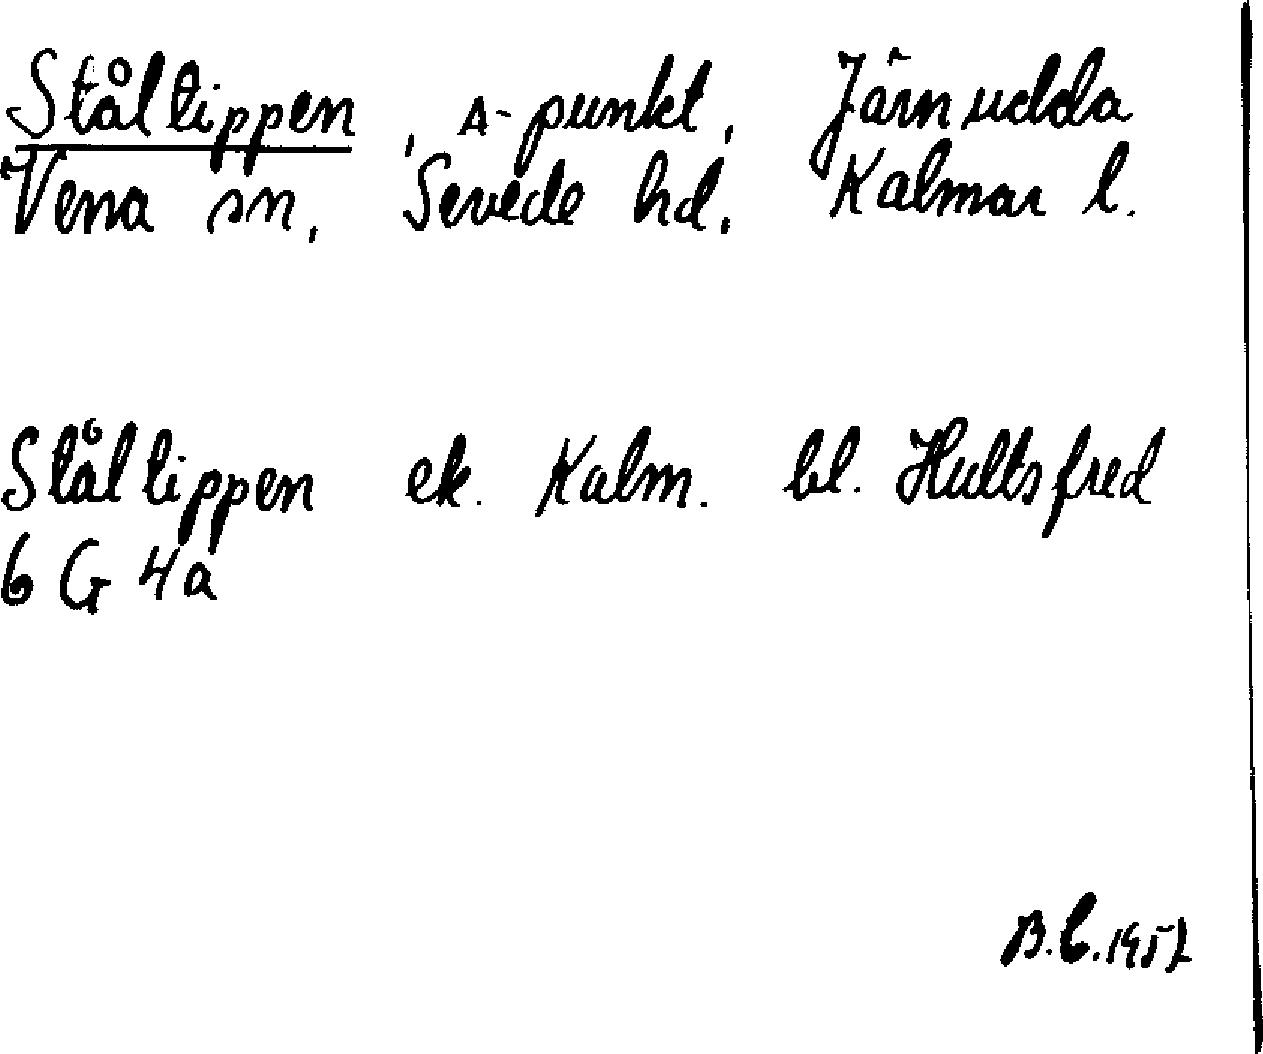 Ståltippen, A-punkt, Järnudda
Vena sn, Sevede hd, Kalmar l.
Ståltippen ek. Kalm. bl. Hultsfred
6 G 4a
B.C.1952